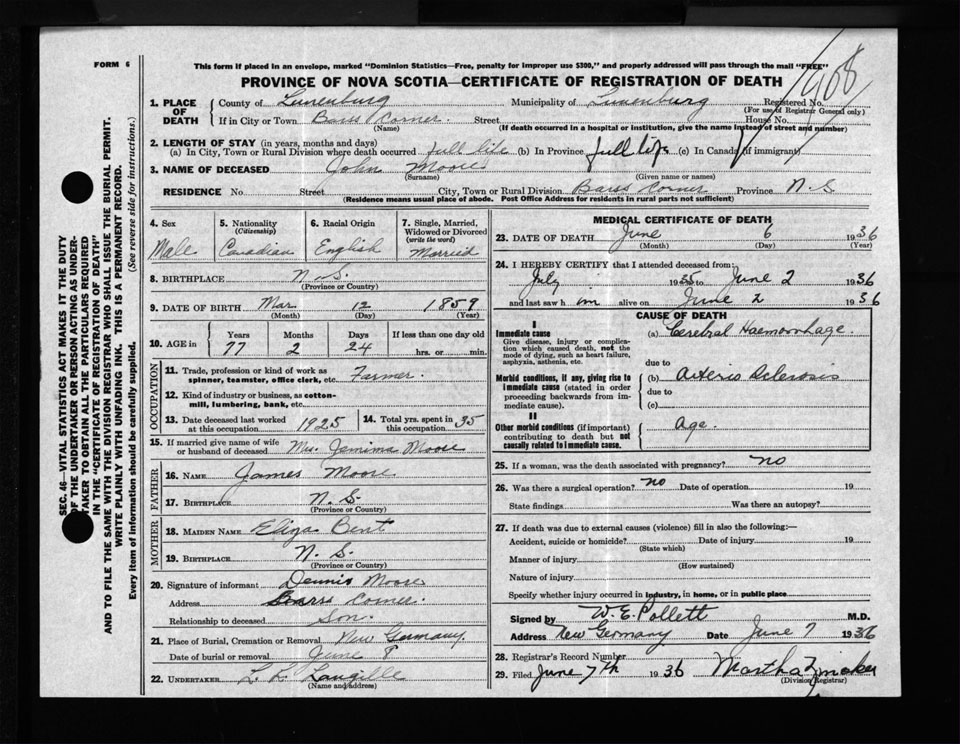 FORM 6
This form if placed in an envelope, marked "Dominion Statistics—Free, penalty for improper use $300," and properly addressed will pass through the mail "FREE"
PROVINCE OF NOVA SCOTIA—CERTIFICATE OF REGISTRATION OF DEATH
SEC. 46—VITAL STATISTICS ACT MAKES IT THE DUTY
OF THE UNDERTAKER OR PERSON ACTING AS UNDER-
TAKER TO OBTAIN ALL THE PARTICULARS REQUIRED
IN THE "CERTIFICATE OF REGISTRATION OF DEATH"
AND TO FILE THE SAME WITH THE DIVISION REGISTRAR WHO SHALL ISSUE THE BURIAL PERMIT.
WRITE PLAINLY WITH UNFADING INK. THIS IS A PERMANENT RECORD.
Every item of information should be carefully supplied. (See reverse side for instructions.)
1. PLACE OF DEATH County of Lunenburg Municipality of Lunenburg Registered No. 908
(For use of Registrar General only)
If in City or Town Barss Corner. Street House No.
(Name) (If death occurred in a hospital or institution, give the name instead of street and number)
2. LENGTH OF STAY (in years, months and days)
(a) In City, Town or Rural Division where death occurred full life (b) In Province full life (c) In Canada (if immigrant)
3. NAME OF DECEASED John Moore
(Surname) (Given name or names)
RESIDENCE No. Street City, Town or Rural Division Barss Corner Province N.S
(Residence means usual place of abode. Post Office Address for residents in rural parts not sufficient)
4. Sex Male
5. Nationality (Citizenship) Canadian
6. Racial Origin English
7. Single, Married, Widowed or Divorced (write the word) Married
8. BIRTHPLACE N.S.
(Province or Country)
9. DATE OF BIRTH Mar 12 1859
(Month) (Day) (Year)
10. AGE in Years 77 Months 2 Days 24 If less than one day old hrs. or min.
OCCUPATION
11. Trade, profession or kind of work as spinner, teamster, office clerk, etc. Farmer.
12. Kind of industry or business, as cotton-mill, lumbering, bank, etc.
13. Date deceased last worked at this occupation 1925
14. Total yrs. spent in this occupation 35
15. If married give name of wife or husband of deceased Mrs. Jemima Moore
FATHER
16. NAME James Moore
17. BIRTHPLACE N.S.
(Province or Country)
MOTHER
18. MAIDEN NAME Eliza Bent
19. BIRTHPLACE N.S.
(Province or Country)
20. Signature of informant Dennis Moore
Address Barss Corner.
Relationship to deceased Son.
21. Place of Burial, Cremation or Removal New Germany
Date of burial or removal June 8
22. UNDERTAKER L. L. Langille
(Name and address)
MEDICAL CERTIFICATE OF DEATH
23. DATE OF DEATH June 6 1936
(Month) (Day) (Year)
24. I HEREBY CERTIFY that I attended deceased from:
July 1935 to June 2 1936
and last saw h im alive on June 2 1936
CAUSE OF DEATH
I
Immediate cause
Give disease, injury or complica-
tion which caused death, not the
mode of dying, such as heart failure,
asphyxia, asthenia, etc.
(a) Cerebral Haemorrhage.
due to
Morbid conditions, if any, giving rise to
immediate cause (stated in order
proceeding backwards from im-
mediate cause).
(b) Arterio Sclerosis
due to
(c)
II
Other morbid conditions (if important)
contributing to death but not
causally related to immediate cause.
Age.
25. If a woman, was the death associated with pregnancy? no
26. Was there a surgical operation? no Date of operation 19
State findings Was there an autopsy?
27. If death was due to external causes (violence) fill in also the following:—
Accident, suicide or homicide? Date of injury 19
(State which)
Manner of injury
(How sustained)
Nature of injury
Specify whether injury occurred in industry, in home, or in public place
Signed by W. E. Pollett M.D.
Address New Germany Date June 7 1936
28. Registrar's Record Number
29. Filed June 7th 1936 Martha Zinaker
(Division Registrar)